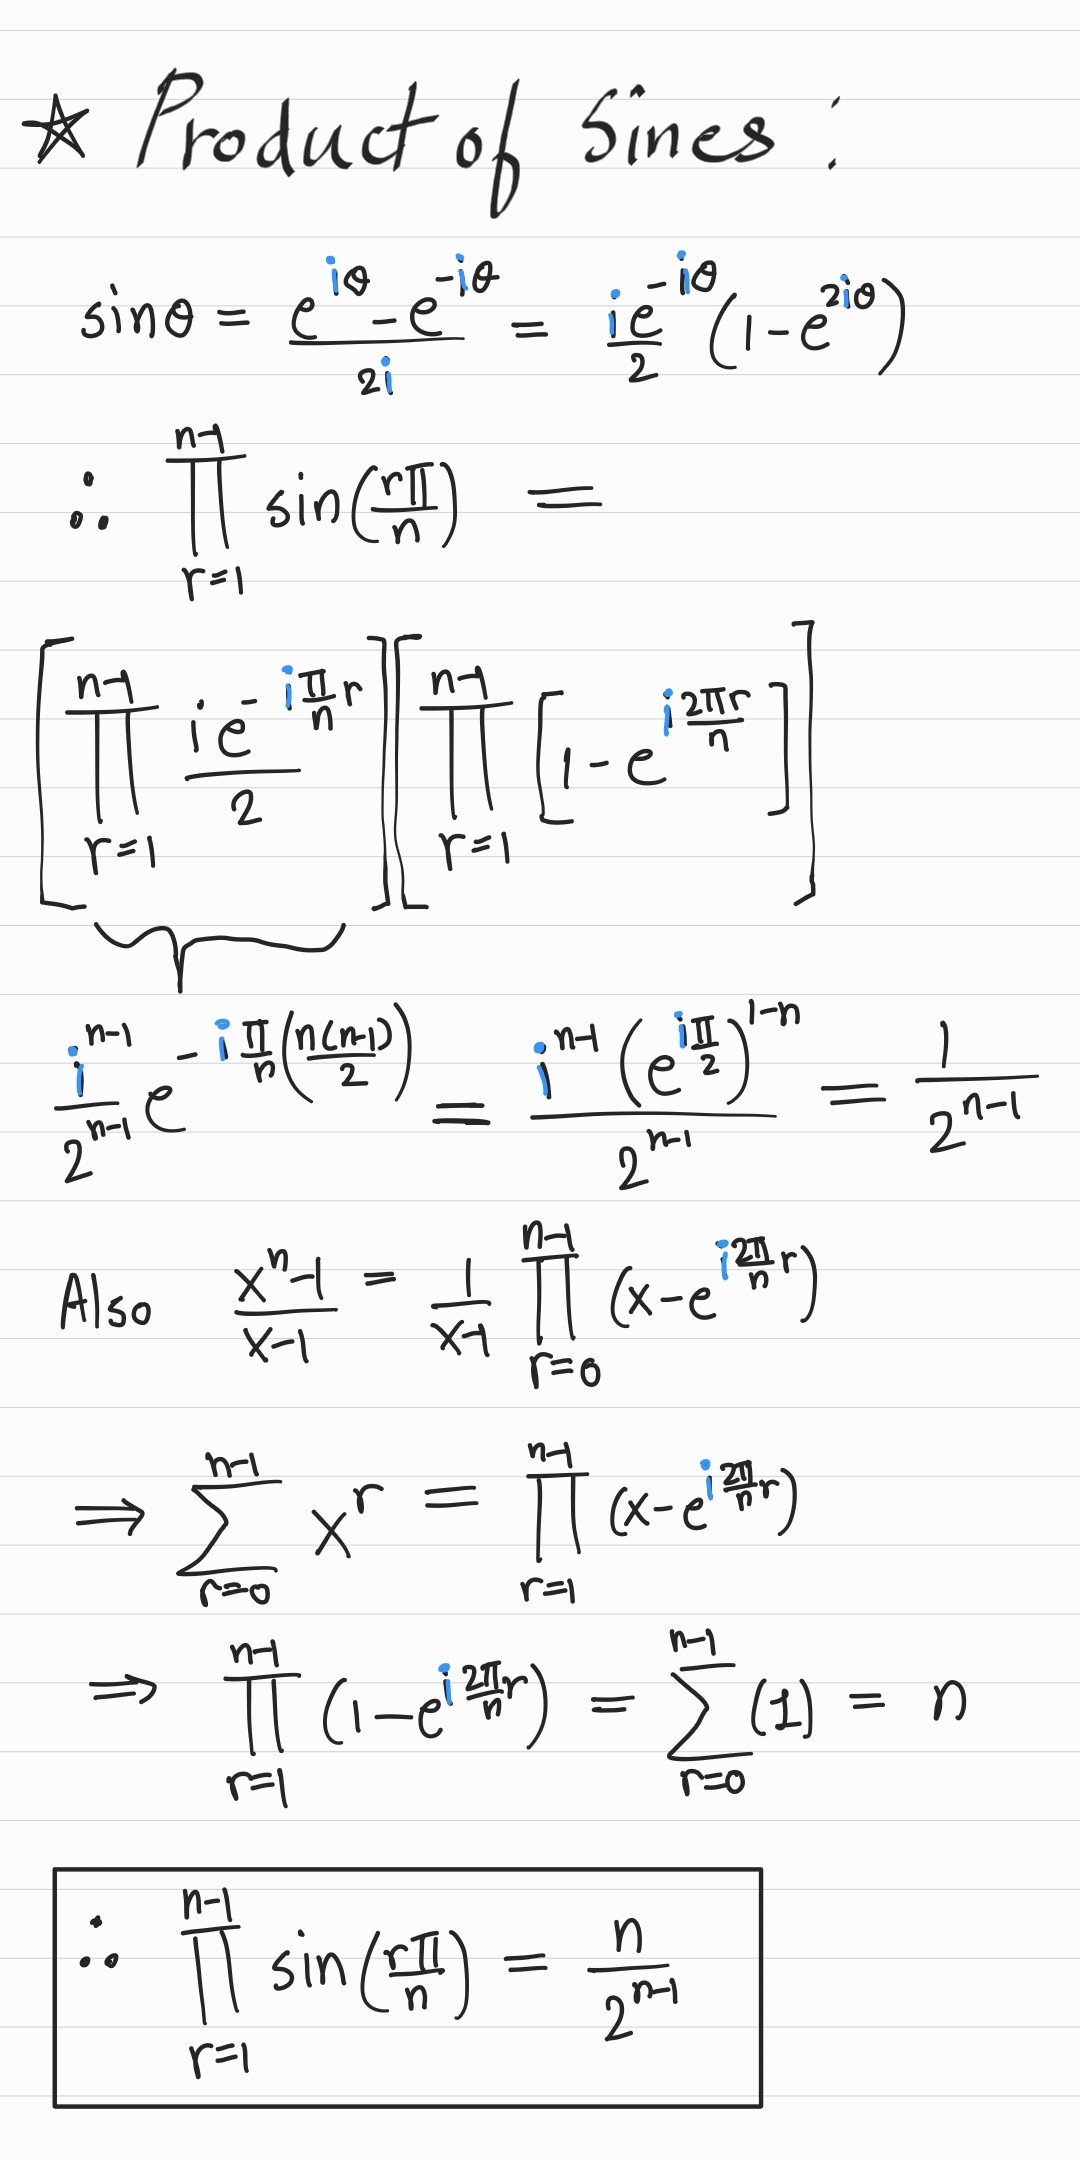 ☆ Product of Sines :
sinθ = (e^{iθ} - e^{-iθ})/(2i) = (ie^{-iθ})/2 (1 - e^{2iθ})
∴ ∏_{r=1}^{n-1} sin(rπ/n) =
[∏_{r=1}^{n-1} (i e^{-i(π/n)r})/2] [∏_{r=1}^{n-1} [1 - e^{i(2πr/n)}]]
(i^{n-1}/2^{n-1}) e^{-i(π/n)(n(n-1)/2)} = (i^{n-1} (e^{iπ/2})^{1-n})/2^{n-1} = 1/2^{n-1}
Also (x^n - 1)/(x-1) = 1/(x-1) ∏_{r=0}^{n-1} (x - e^{i(2π/n)r})
⇒ ∑_{r=0}^{n-1} x^r = ∏_{r=1}^{n-1} (x - e^{i(2π/n)r})
⇒ ∏_{r=1}^{n-1} (1 - e^{i(2π/n)r}) = ∑_{r=0}^{n-1} (1) = n
∴ ∏_{r=1}^{n-1} sin(rπ/n) = n/2^{n-1}